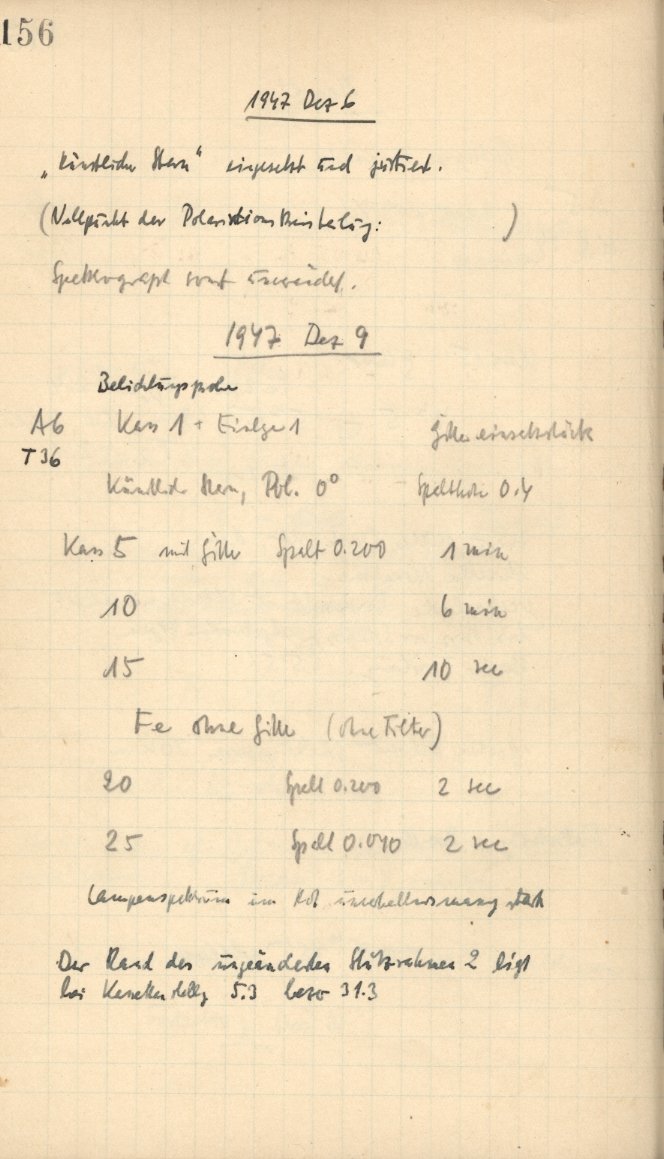 156
1947 Dez 6
„Künstlicher Stern“ eingesetzt und justiert.
(Nullpunkt der Polarisations Einstellung: )
Spektrograph sonst unverändert.
1947 Dez 9
Belichtungsprobe
A6 Kass 1 + Einlage 1 Gittereinsatzstück
T36
Künstlicher Stern, Pol. 0° Spalthöhe 0.4
Kass 5 mit Gitter Spalt 0.200 1 min
10 6 min
15 10 sec
Fe ohne Gitter (ohne Filter)
20 Spalt 0.200 2 sec
25 Spalt 0.040 2 sec
Lampenspektrum im Rot stark
Der Rand des ungeänderten Stützrahmen 2 liegt
bei Kassettenstellg 5.3 bezw 31.3